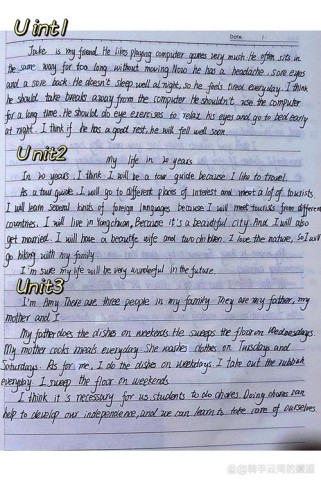 Unit1
Date.
Jake is my friend. He likes playing computer games very much. He often sits in
the same way for too long without moving. Now he has a headache, sore eyes
and a sore back. He doesn't sleep well at night, so he feels tired everyday. I think
he should take breaks away from the computer. He shouldn't use the computer
for a long time. He should do eye exercises to relax his eyes and go to bed early
at night. I think if he has a good rest, he will feel well soon.
Unit2
My life in 20 years
In 20 years, I think I will be a tour guide because I like to travel.
As a tour guide, I will go to different places of interest and meet a lof of tourists.
I will learn several kinds of foreign languages because I will meet tourists from different
countries. I will live in Yongchuan, Because it's a beautiful city. And I will also
get married. I will have a beautife wife and two children. I love the nature, So I will
go hiking with my family
I'm sure my life will be very wonderful in the future.
Unit3
I'm Amy. There are three people in my family. They are my father, my
mother and I.
My father does the dishes on weekends. He sweeps the floor on Wednesdays.
My mother cooks meals everyday. She washes clothes on Tuesday and
Saturdays. As for me, I do the dishes on weekdays. I take out the rubbish
everyday. I sweep the floor on weekends.
I think it is necessary for us students to do chores. Doing chores can
help to develop our independence, and we can learn to take care of ourselves.